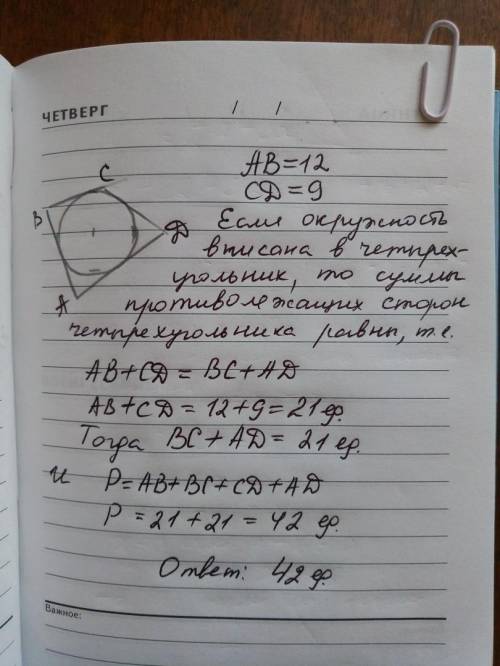 ЧЕТВЕРГ / /
AB=12
CD=9
C
B
D
A
Если окружность
вписана в четырех-
угольник, то суммы
противолежащих сторон
четырехугольника равны, т.е.
AB+CD = BC+AD
AB+CD = 12+9=21 ед.
Тогда BC+AD = 21 ед.
и P=AB+BC+CD+AD
P = 21+21 = 42 ед.
Ответ: 42 ед.
Важное: